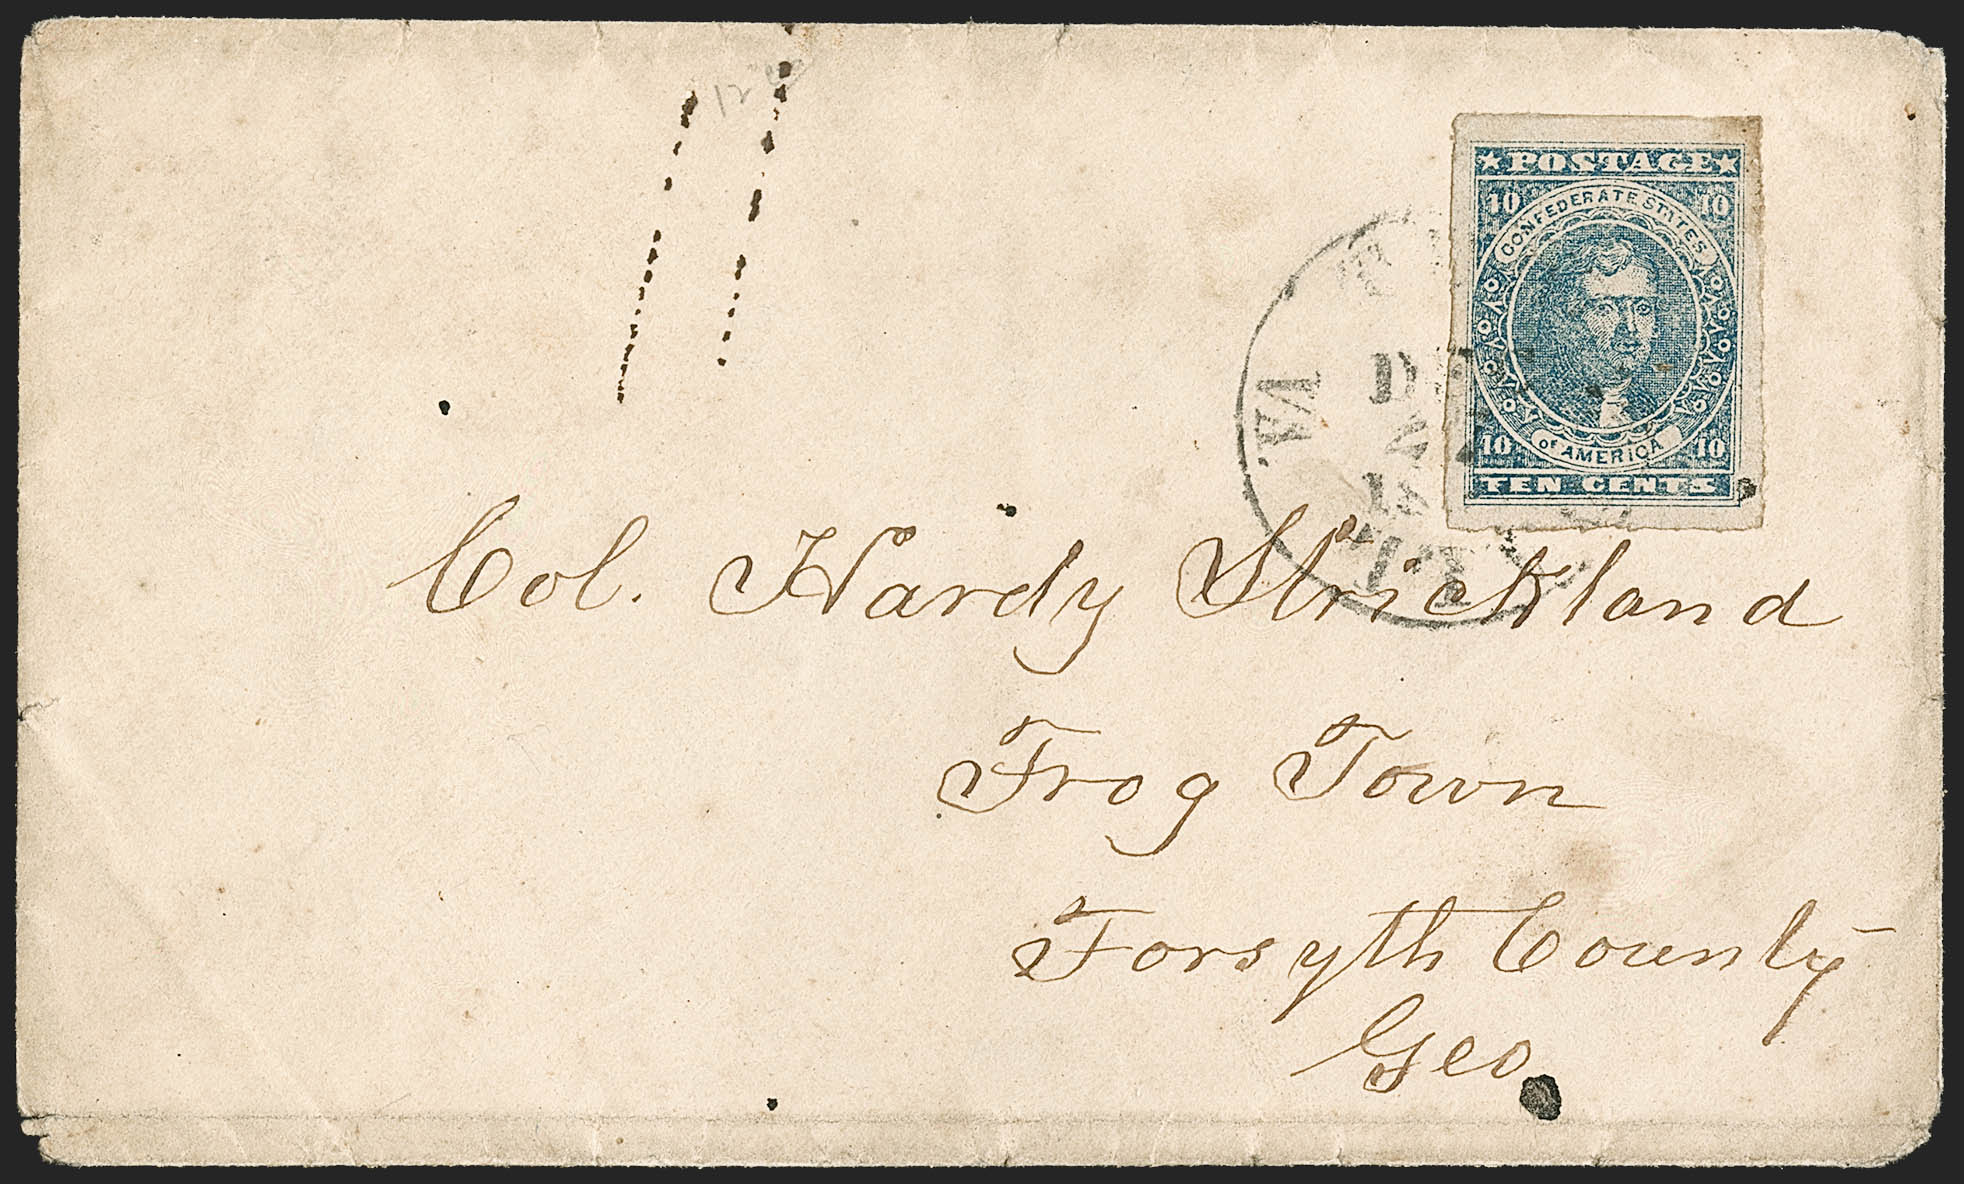 12
★ POSTAGE ★
10 10
CONFEDERATE STATES
OF AMERICA
10 10
TEN CENTS
VA.
Col. Hardy Strickland
Frog Town
Forsyth County
Geo